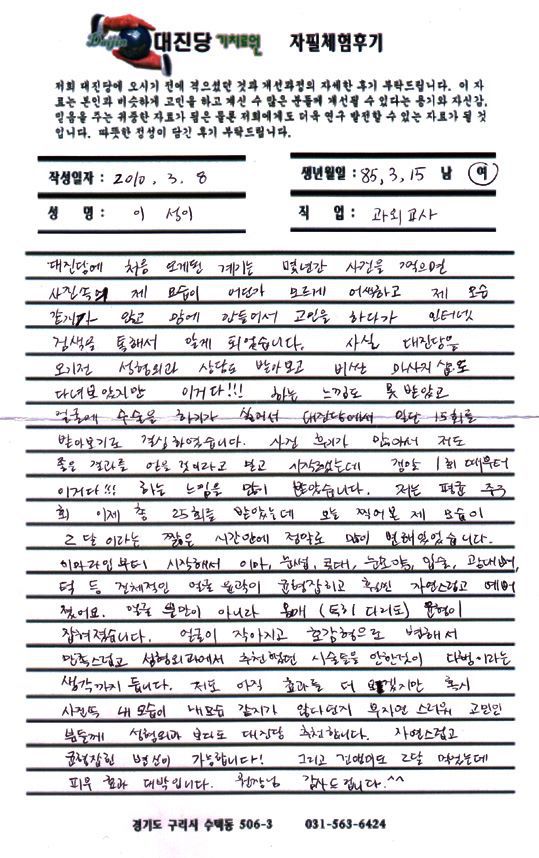 Daijin 대진당 기치료원 자필체험후기
저희 대진당에 오시기 전에 적으셨던 것과 개선과정의 자세한 후기 부탁드립니다. 이 자
료는 본인과 비슷하게 고민을 하고 계신 수 많은 분들께 개선될 수 있다는 용기와 자신감,
믿음을 주는 귀중한 자료가 됨은 물론 저희에게도 더욱 연구 발전할 수 있는 자료가 될 것
입니다. 따뜻한 정성이 담긴 후기 부탁드립니다.
작성일자 : 2010. 3. 8 생년월일 : 85, 3, 15 남 여
성 명 : 이 성이 직 업 : 과외교사
대진당에 처음 오게된 계기는 몇년간 사진을 찍으면
사진속의 제 모습이 어딘가 모르게 어색하고 제 모습
같지가 않고 맘에 안들어서 고민을 하다가 인터넷
검색을 통해서 알게 되었습니다. 사실 대진당을
오기전 성형외과 상담도 받아보고 비싼 마사지샵도
다녀보았지만 이거다!!! 하는 느낌도 못 받았고
얼굴에 수술을 하기가 싫어서 대진당에서 일단 15회를
받아보기로 결심하였습니다. 사진 후기가 많아서 저도
좋은 결과를 얻을 것이라고 믿고 시작했는데 1회 때부터
이거다!!! 하는 느낌을 많이 받았습니다. 저는 평균 주
회 이제 총 25회를 받았는데 오늘 찍어본 제 모습이
2달이라는 짧은 시간안에 정말로 많이 변해있었습니다.
이마라인부터 시작해서 이마, 눈썹, 콧대, 눈모양, 입술, 광대뼈,
턱 등 전체적인 얼굴 윤곽이 균형잡히고 훨씬 자연스럽고 예뻐
졌어요. 얼굴 뿐만이 아니라 몸매 (특히 다리도) 균형이
잡혀졌습니다. 얼굴이 작아지고 호감형으로 변해서
만족스럽고 성형외과에서 추천했던 시술들을 안한것이 다행이라는
생각까지 듭니다. 저도 아직 효과를 더 보겠지만 혹시
사진속 내 모습이 내모습 같지가 않다던지 부자연스러워 고민인
분들께 성형외과 보다도 대진당 추천합니다. 자연스럽고
균형잡힌 변신이 가능합니다! 그리고 2달 먹었는데
피부 효과 대박입니다. 원장님 감사드립니다.^^
경기도 구리시 수택동 506-3 031-563-6424